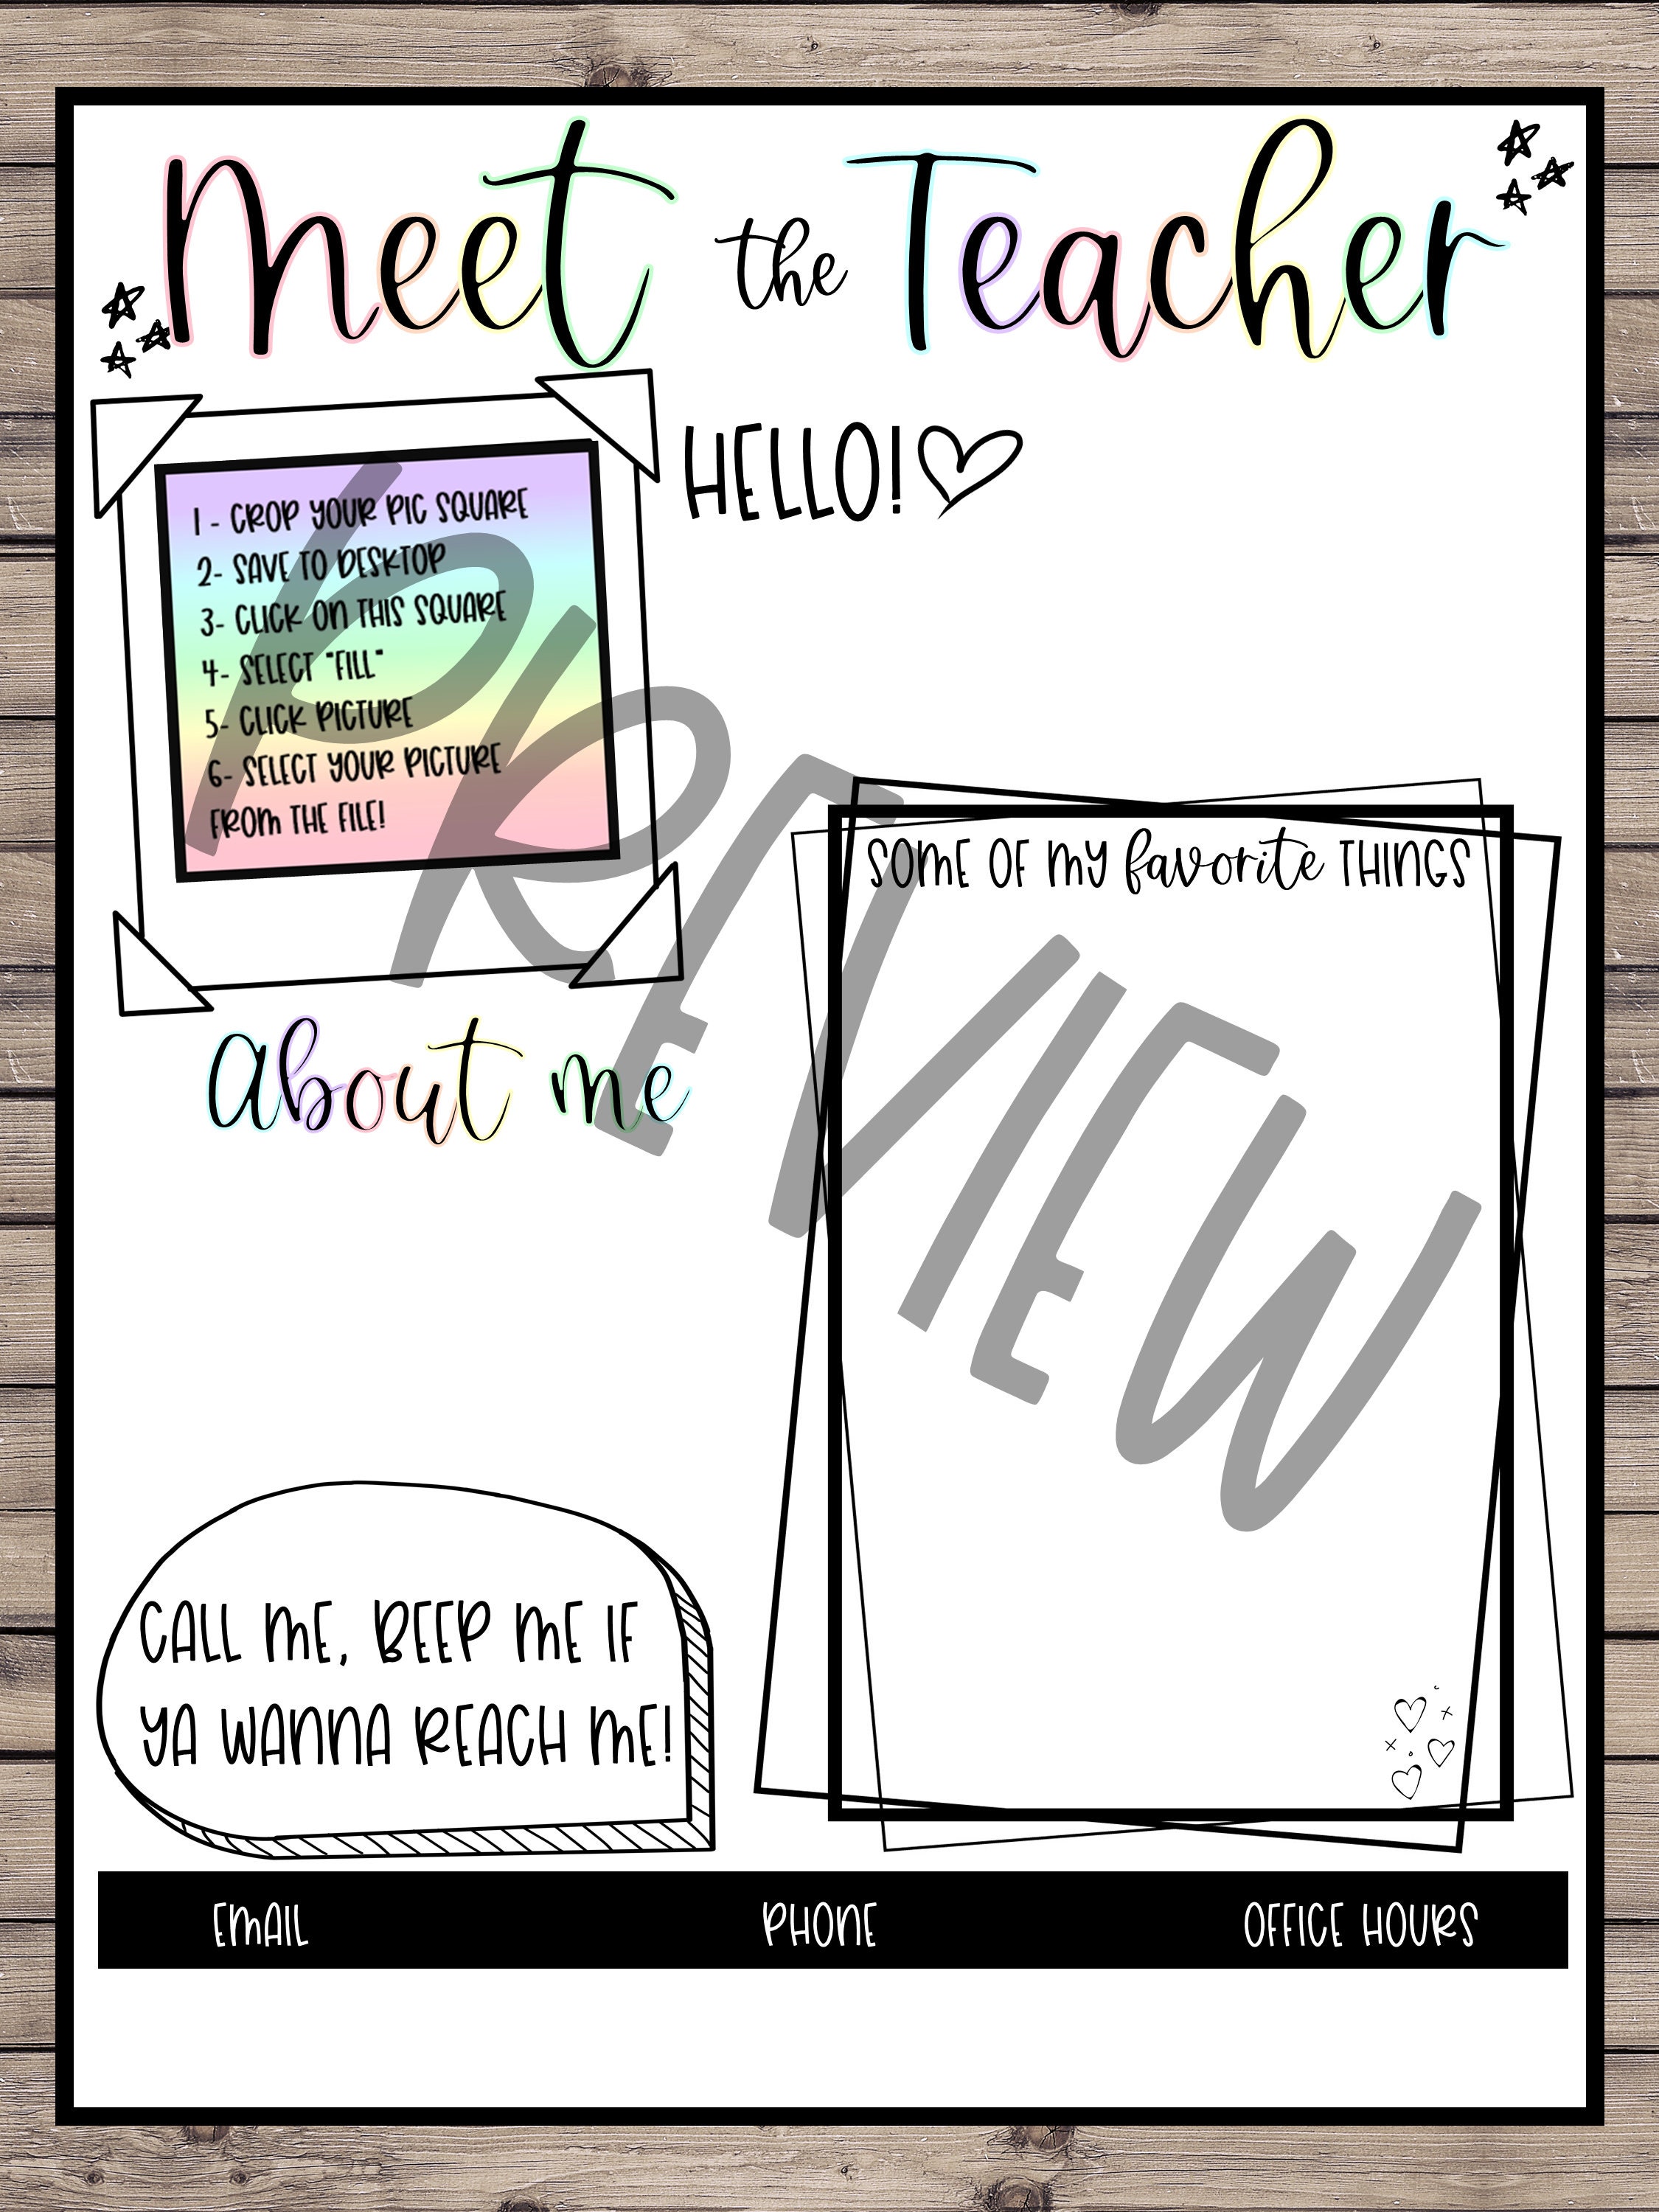 Meet the Teacher
HELLO!
1 - CROP YOUR PIC SQUARE
2- SAVE TO DESKTOP
3- CLICK ON THIS SQUARE
4- SELECT "FILL"
5- CLICK PICTURE
6- SELECT YOUR PICTURE
FROM THE FILE!
SOME OF MY favorite THINGS
About me
PREVIEW
CALL ME, BEEP ME IF
YA WANNA REACH ME!
EMAIL PHONE OFFICE HOURS